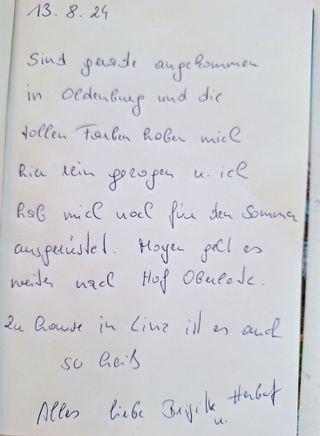 13.8.24
Sind gerade angekommen
in Oldenburg und die
tollen Farben haben mich
hier rein gezogen u. ich
hab mich noch für den Sommer
ausgerüstet. Morgen geht es
weiter nach Hof
Zu Hause in Linz ist es auch
so heiß
Alles liebe Brigitte u. Herbert